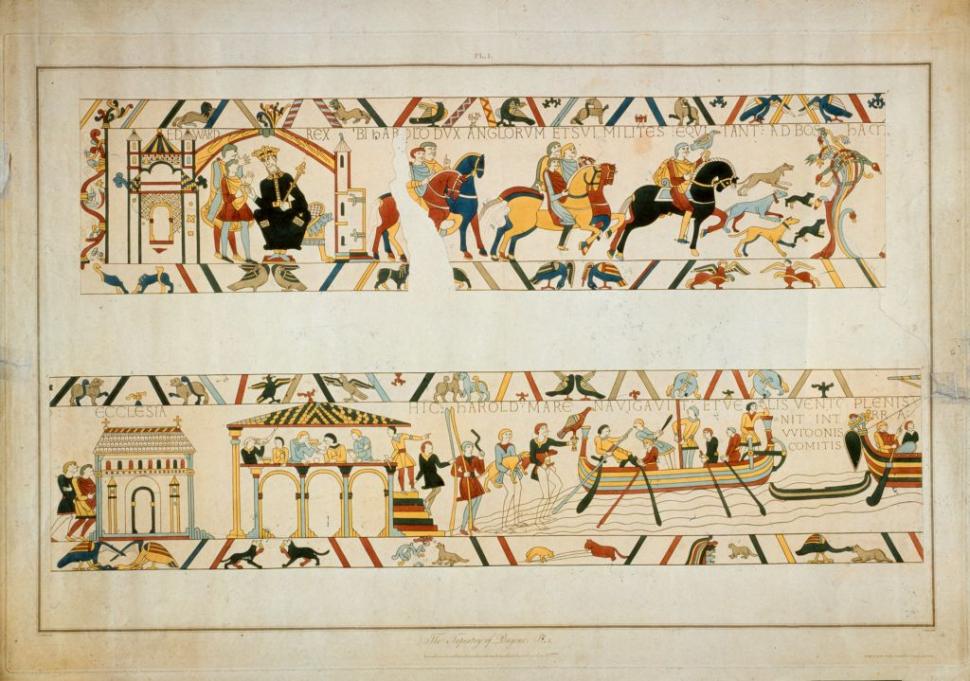 PL. I.
EDWARD REX BI hAR LO DVX ANGLORVM ET SVI MILITES :EQVI TANT: AD BOS hAM
ECCLESIA HIC: HAROLD: MARE NAVIGAVI ET VELIS VENTO PLENIS
NIT INT RRA
VVIDONIS
COMITIS
The Tapestry of Bayeux. Pl. I.